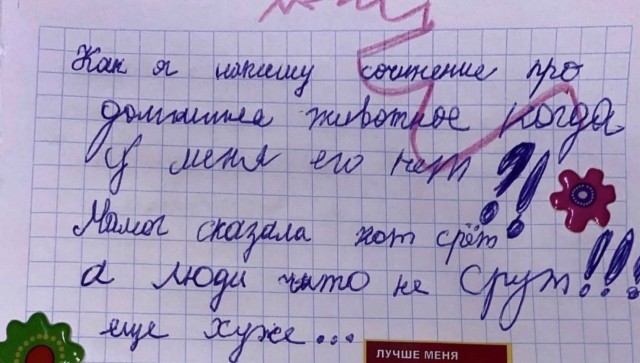 Как я напишу сочинение про
домашнеа животное когда
У меня его нет ?!
Мамог сказала кот срёт
а люди чыто не Срут!!!
еще хуже...
ЛУЧШЕ МЕНЯ